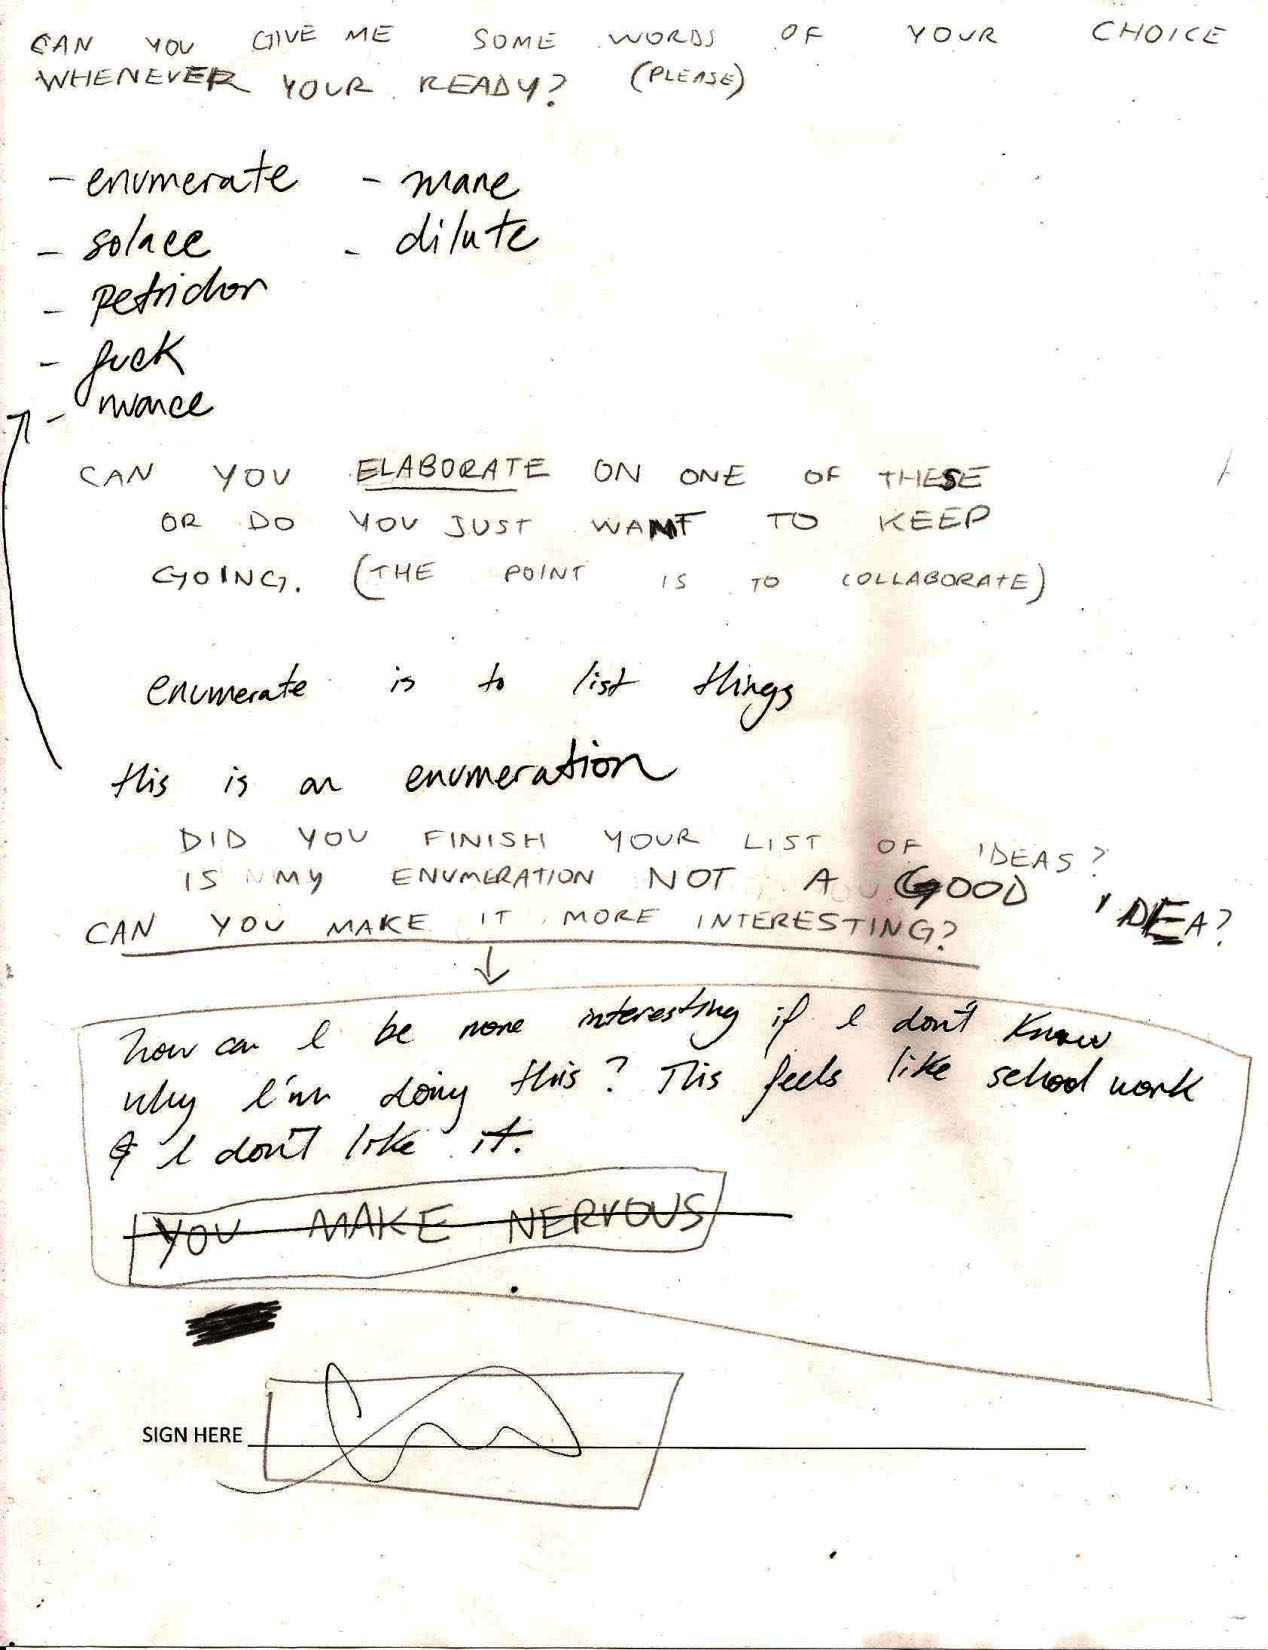 CAN YOU GIVE ME SOME WORDS OF YOUR CHOICE
WHENEVER YOUR READY? (PLEASE)
- enumerate - mane
- solace - dilute
- petrichor
- fuck
- nuance
CAN YOU ELABORATE ON ONE OF THESE
OR DO YOU JUST WANT TO KEEP
GOING. (THE POINT IS TO COLLABORATE)
enumerate is to list things
this is an enumeration
DID YOU FINISH YOUR LIST OF IDEAS?
IS MY ENUMERATION NOT A GOOD IDEA?
CAN YOU MAKE IT MORE INTERESTING?
how can I be more interesting if I don't know
why I'm doing this? This feels like school work
& I don't like it.
YOU MAKE NERVOUS
SIGN HERE